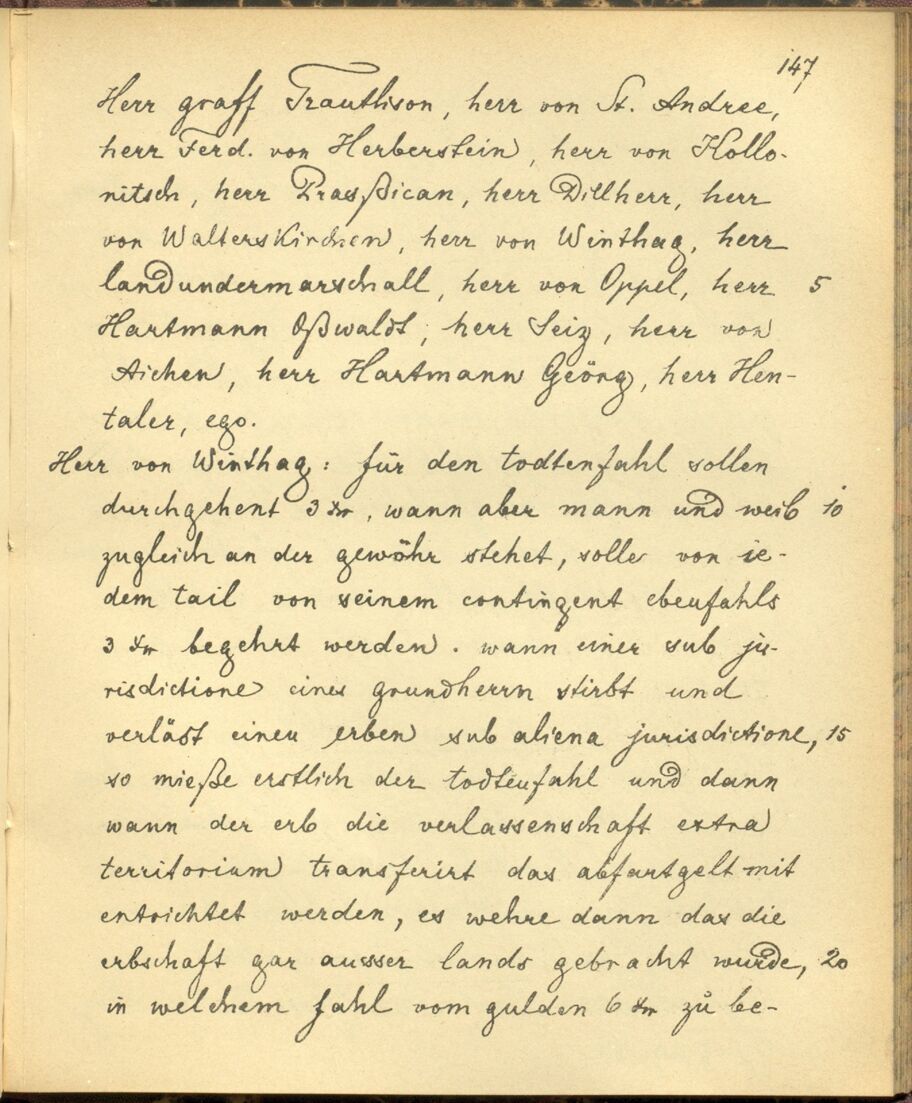 147
Herr graff Trauthson, herr von St. Andree,
herr Ferd. von Herberstein, herr von Hollo-
nitsch, herr Prasßican, herr Dillherr, herr
von Walterskirchen, herr von Winthag, herr
landundermarschall, herr von Oppel, herr 5
Hartmann Oßwaldt, herr Seiz, herr von
Aichen, herr Hartmann Geörg, herr Hen-
taler, ego.
Herr von Winthag: für den todtenfahl sollen
durchgehent 3 xr, wann aber mann und weib 10
zugleich an der gewöhr stehet, solle von ie-
dem tail von seinem contingent ebenfahls
3 xr begehrt werden. wann einer sub ju-
risdictione eines grundherrn stirbt und
verläst einen erben sub aliena jurisdictione, 15
so mieße erstlich der todtenfahl und dann
wann der erb die verlassenschaft extra
territorium transferirt das abfartgelt mit
entrichtet werden, es wehre dann das die
erbschaft gar ausser lands gebracht wurde, 20
in welchem fahl vom gulden 6 xr zů be-